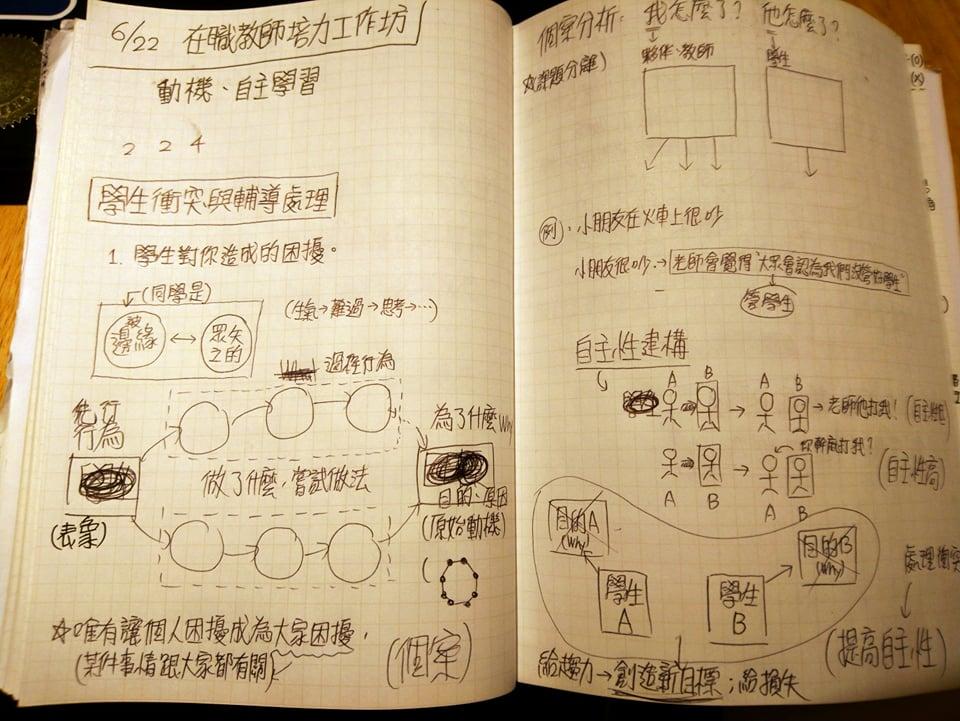 6/22 在職教師培力工作坊
動機、自主學習
2 2 4
學生衝突與輔導處理
1. 學生對你造成的困擾。
(同學是)
被邊緣 ↔ 眾矢之的
(生氣→難過→思考→…)
過程行為
先行行為
(表象)
做了什麼,嘗試做法
為了什麼why
目的、原因
(原始動機)
☆唯有讓個人困擾成為大家困擾,
(某件事情跟大家都有關)
(個案)
個案分析: 我怎麼了? 他怎麼了?
夥伴、教師 學生
課題分離)
例. 小朋友在火車上很吵
小朋友很吵.→老師會覺得"大眾會認為我們沒管好學生"
管學生
自主性建構
A B A B → 老師他打我! (自主性低)
你幹麻打我?
A B A B (自主性高)
目的A (why)
目的B (why)
學生A
學生B
處理衝突
(提高自主性)
給趨力→創造新目標;給損失
(O)
(X)